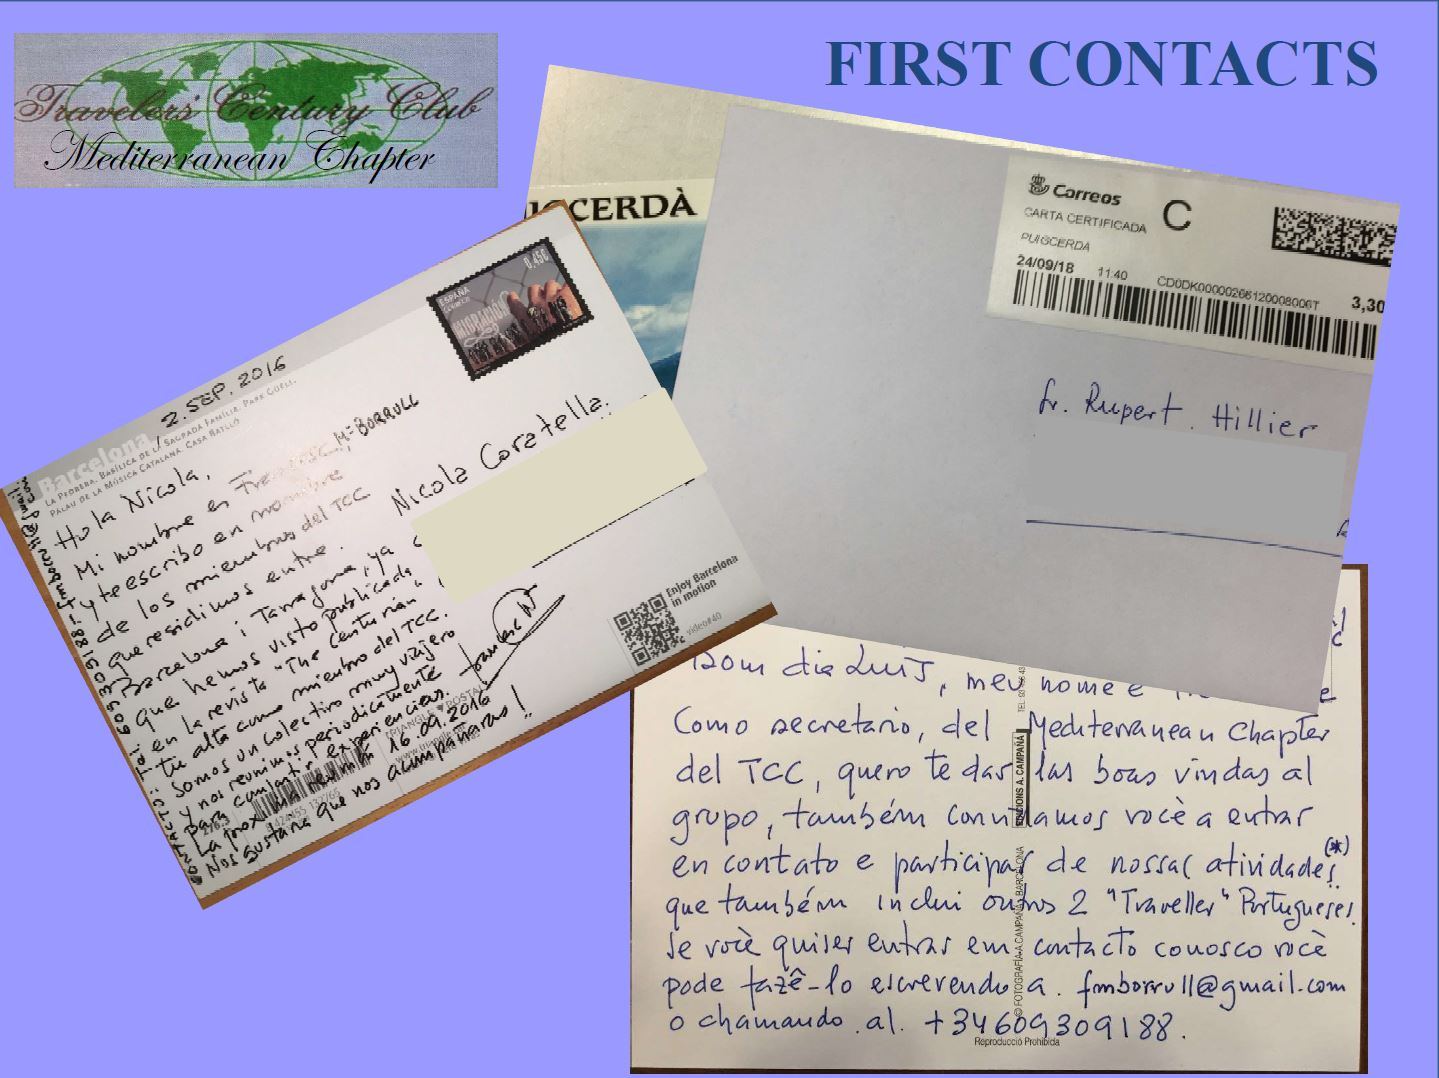 FIRST CONTACTS
Travelers' Century Club
Mediterranean Chapter
CERDÀ
Correos
CARTA CERTIFICADA
C
PUIGCERDA
24/09/18 11:40 CD0DK00000266120008006T 3,30
Sr. Rupert Hillier
ESPAÑA
0,45€
2. SEP. 2016
Barcelona
LA PEDRERA. BASÍLICA DE LA SAGRADA FAMÍLIA. PARK GÜELL.
PALAU DE LA MÚSICA CATALANA. CASA BATLLÓ
Hola Nicola,
Mi nombre es Francesc Mª BORRULL
y te escribo en nombre
de los miembros del TCC
que residimos entre
Barcelona i Tarragona, ya
que hemos visto publicada
en la revista "The Centurian"
tu alta como miembro del TCC.
Somos un colectivo muy viajero
y nos reunimos periodicamente
para compartir experiencias.
La proxima reunión 16.09.2016
Nos gustaria que nos acompañaras!
CONTACTO:
609309188
fmborrull@gmail.com
Nicola Coratella.
Enjoy Barcelona
in motion
video#40
TRIANGLE POSTALS
Bom dia Luis, meu nome é
Como secretario, del Mediterranean Chapter
del TCC, quero te dar las boas vindas al
grupo, também convidamos você a entrar
en contato e participar de nossas atividades (*)
que também inclui outros 2 "Traveller" Portugueses.
Se você quiser entrar em contacto conosco você
pode fazê-lo escrevendo a. fmborrull@gmail.com
o chamando al. +34609309188.
EDICIONS A. CAMPAÑÁ
© FOTOGRAFÍA A. CAMPAÑÁ BARCELONA
Reproducció Prohibida